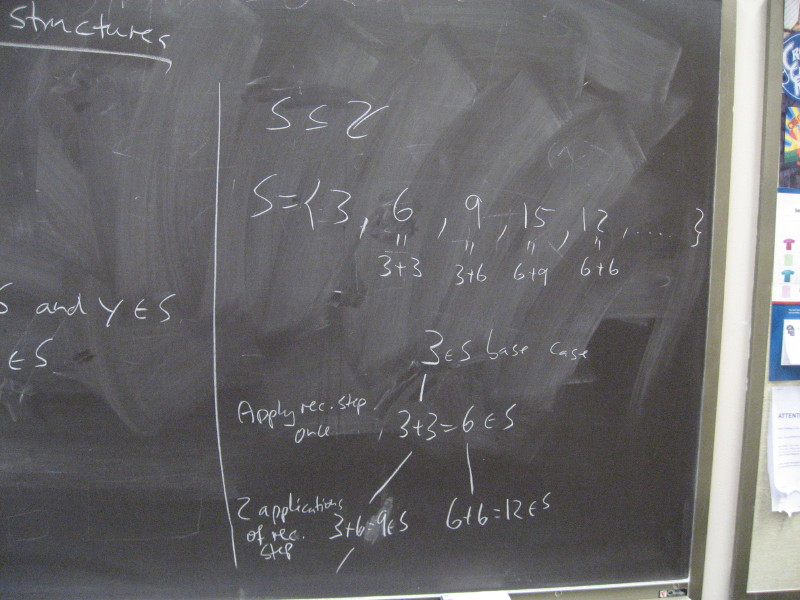 structures
S ⊆ Z
S = { 3, 6, 9, 15, 12, ..... }
" " " "
3+3 3+6 6+9 6+6
S and Y ∈ S
∈ S
3 ∈ S base case
Apply rec. step once
3+3 = 6 ∈ S
2 applications of rec. step
3+6=9 ∈ S 6+6=12 ∈ S
ATTENTI